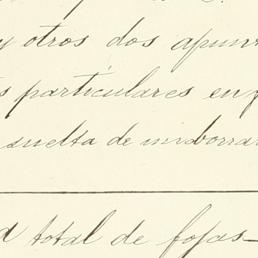 y otros dos apun
s particulares en
suelta de mi borra
total de fojas